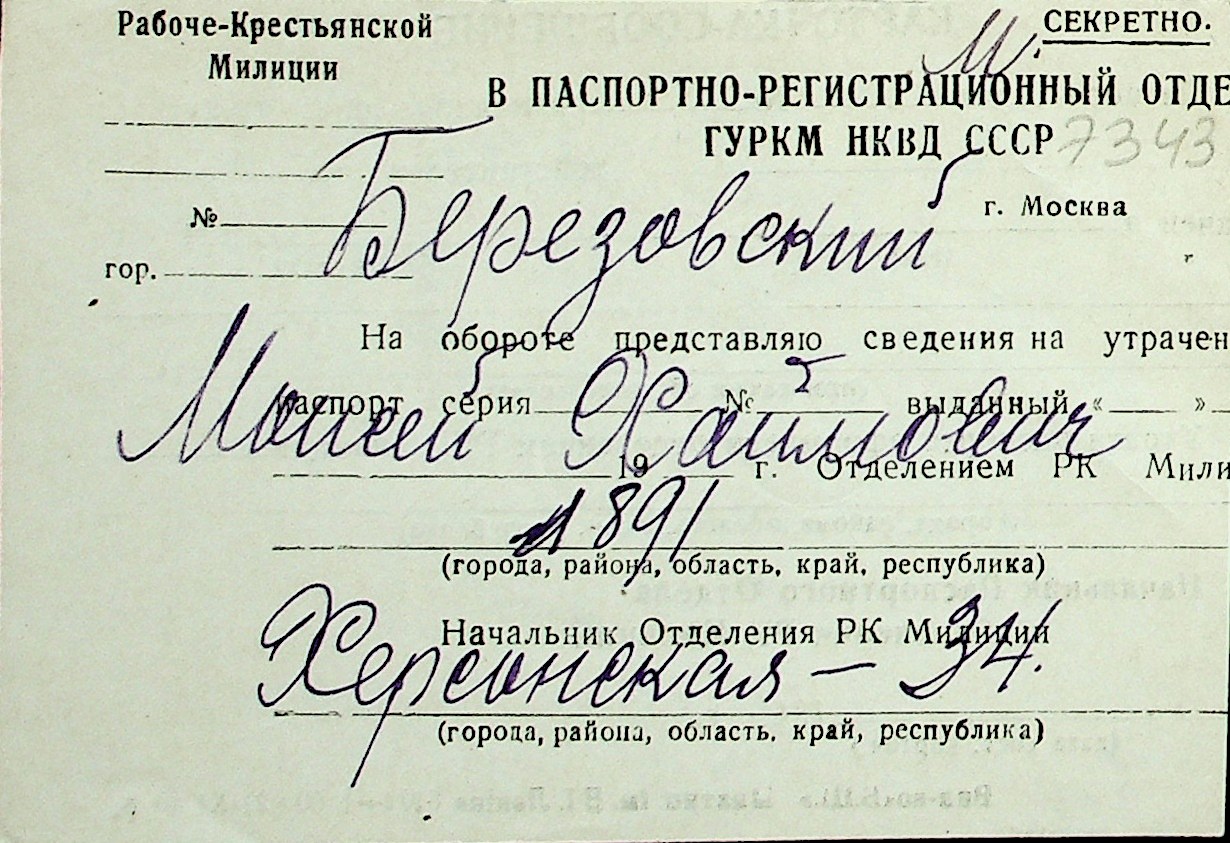 Рабоче-Крестьянской
Милиции
СЕКРЕТНО.
М.
В ПАСПОРТНО-РЕГИСТРАЦИОННЫЙ ОТДЕ
ГУРКМ НКВД СССР
7343
г. Москва
№
Березовский
гор.
На обороте представляю сведения на утрачен
паспорт серия № выданный « »
Моисей Хаимович
19 г. Отделением РК Мили
1891
(города, района, область, край, республика)
Начальник Отделения РК Милиции
Херсонская – 34.
(города, района, область, край, республика)